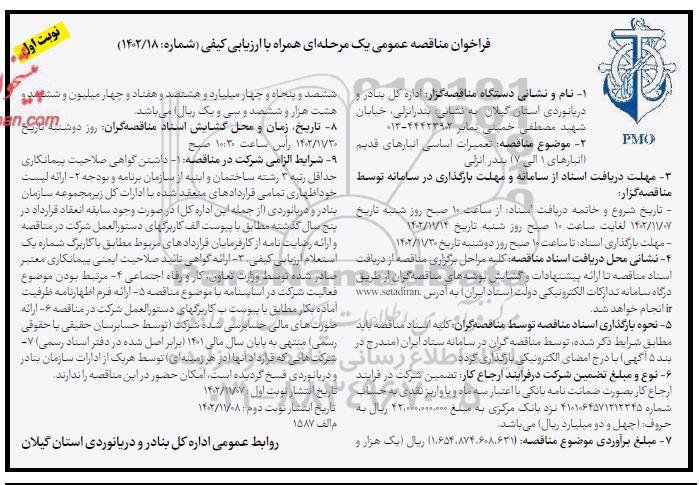 نوبت اول
فراخوان مناقصه عمومی یک مرحله‌ای همراه با ارزیابی کیفی (شماره: ۱۴۰۲/۱۸)
PMO
۱- نام و نشانی دستگاه مناقصه‌گزار: اداره کل بنادر و
دریانوردی استان گیلان به نشانی: بندرانزلی، خیابان
شهید مصطفی خمینی نمابر ۴۴۴۲۳۹۲-۰۱۳
۲- موضوع مناقصه: تعمیرات اساسی انبارهای قدیم
(انبارهای ۱ الی ۷) بندر انزلی
۳- مهلت دریافت اسناد از سامانه و مهلت بارگذاری در سامانه توسط
مناقصه‌گزار:
- تاریخ شروع و خاتمه دریافت اسناد: از ساعت ۱۰ صبح روز شنبه تاریخ
۱۴۰۲/۱۱/۰۷ لغایت ساعت ۱۰ صبح روز شنبه تاریخ ۱۴۰۲/۱۱/۱۴
- مهلت بارگذاری اسناد: تا ساعت ۱۰ صبح روز دوشنبه تاریخ ۱۴۰۲/۱۱/۳۰
۴- نشانی محل دریافت اسناد مناقصه: کلیه مراحل برگزاری مناقصه از دریافت
اسناد مناقصه تا ارائه پیشنهادات و گشایش پوشه‌های مناقصه‌گران از طریق
درگاه سامانه تدارکات الکترونیکی دولت (ستاد ایران) به آدرس www.setadiran.
ir انجام خواهد شد.
۵- نحوه بارگذاری اسناد مناقصه توسط مناقصه‌گران: کلیه اسناد مناقصه باید
مطابق شرایط ذکر شده، توسط مناقصه گران در سامانه ستاد ایران (مندرج در
بند ۵ آگهی) با درج امضای الکترونیکی بارگذاری گردد.
۶- نوع و مبلغ تضمین شرکت درفرآیند ارجاع کار: تضمین شرکت در فرایند
ارجاع کار بصورت ضمانت نامه بانکی با اعتبار سه ماه و یا واریز نقدی به حساب
شماره ۴۱۰۱۰۶۴۵۷۱۲۱۲۳۴۵ نزد بانک مرکزی به مبلغ ۴۲,۰۰۰,۰۰۰,۰۰۰ ریال به
حروف: (چهل و دو میلیارد ریال) می‌باشد.
۷- مبلغ برآوردی موضوع مناقصه: (۱,۶۵۴,۸۷۴,۶۰۸,۶۳۱) ریال (یک هزار و
ششصد و پنجاه و چهار میلیارد و هشتصد و هفتاد و چهار میلیون و ششصد و
هشت هزار و ششصد و سی و یک ریال) می‌باشد.
۸- تاریخ، زمان و محل گشایش اسناد مناقصه‌گران: روز دوشنبه تاریخ
۱۴۰۲/۱۱/۳۰ رأس ساعت ۱۰:۲۰ صبح
۹- شرایط الزامی شرکت در مناقصه: ۱- داشتن گواهی صلاحیت پیمانکاری
حداقل رتبه ۳ رشته ساختمان و ابنیه از سازمان برنامه و بودجه ۲- ارائه لیست
خوداظهاری تمامی قراردادهای منعقد شده با ادارات کل زیرمجموعه سازمان
بنادر و دریانوردی (از جمله این اداره کل) در صورت وجود سابقه انعقاد قرارداد در
پنج سال گذشته مطابق با پیوست الف کاربرگهای دستورالعمل شرکت در مناقصه
و ارائه رضایت نامه از کارفرمایان قراردادهای مربوط مطابق با کاربرگ شماره یک
استعلام ارزیابی کیفی. ۳- ارائه گواهی تائید صلاحیت ایمنی پیمانکاری معتبر
صادر شده توسط وزارت تعاون، کار و رفاه اجتماعی ۴- مرتبط بودن موضوع
فعالیت شرکت در اساسنامه با موضوع مناقصه ۵- ارائه فرم اظهارنامه ظرفیت
آماده بکار مطابق با پیوست ب کاربرگهای دستورالعمل شرکت در مناقصه ۶- ارائه
صورت های مالی حسابرسی شده شرکت (توسط حسابرسان حقیقی یا حقوقی
رسمی) منتهی به پایان سال مالی ۱۴۰۱ (برابر اصل شده در دفتر اسناد رسمی) ۷-
شرکت‌هایی که قرارداد آنها (در هر زمینه‌ای) توسط هریک از ادارات سازمان بنادر
و دریانوردی فسخ گردیده است، امکان حضور در این مناقصه را ندارند.
تاریخ انتشار نوبت اول: ۱۴۰۲/۱۱/۰۷
تاریخ انتشار نوبت دوم: ۱۴۰۲/۱۱/۰۸
م الف ۱۵۸۷
روابط عمومی اداره کل بنادر و دریانوردی استان گیلان